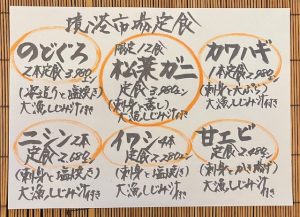 境港市場定食
のどぐろ
2本定食3,980円
(姿造りと塩焼き)
大漁しじみ汁付き
限定12食
松葉ガニ
定食3,980円
(刺身と蒸し)
大漁しじみ汁付き
カワハギ
1本定食2,980円
(刺身と天ぷら)
大漁しじみ汁付き
ニシン2本
定食2,680円
(刺身と塩焼き)
大漁しじみ汁付き
イワシ4本
定食2,280円
(刺身と塩焼き)
大漁しじみ汁付き
甘エビ
定食2,480円
(刺身とかき揚げ)
大漁しじみ汁付き